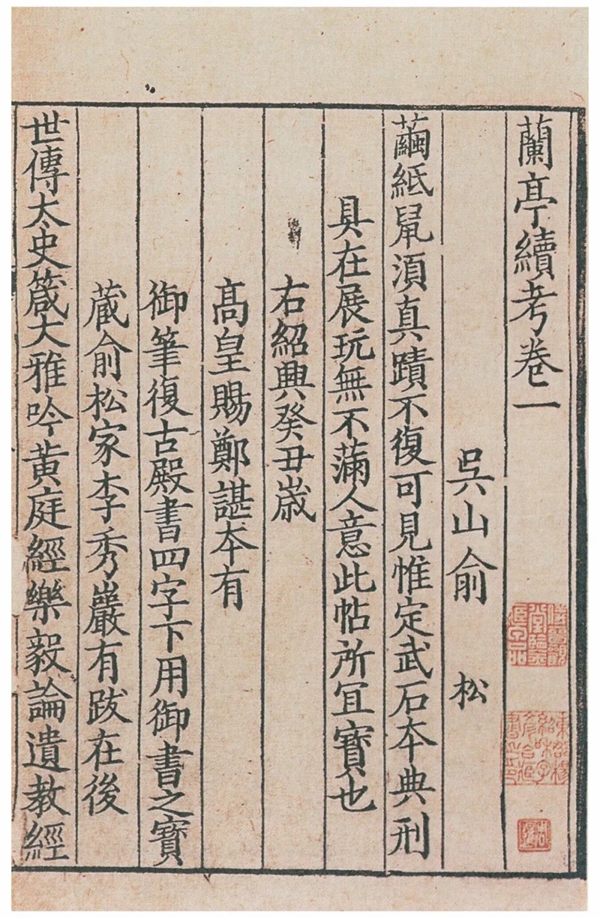 蘭亭續考卷一
吳山俞 松
繭紙鼠須真蹟不復可見惟定武石本典刑
具在展玩無不滿人意此帖所宜寶也
右紹興癸丑歲
高皇賜鄭諶本有
御筆復古殿書四字下用御書之寶
蔵俞松家李秀巖有跋在後
世傳太史箴大雅吟黃庭經樂毅論遺教經